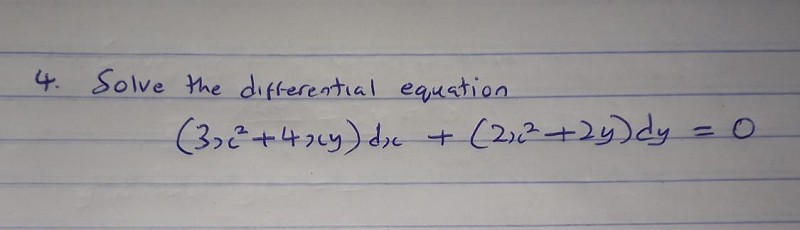 4. Solve the differential equation
(3x²+4xy)dx + (2x²+2y)dy = 0